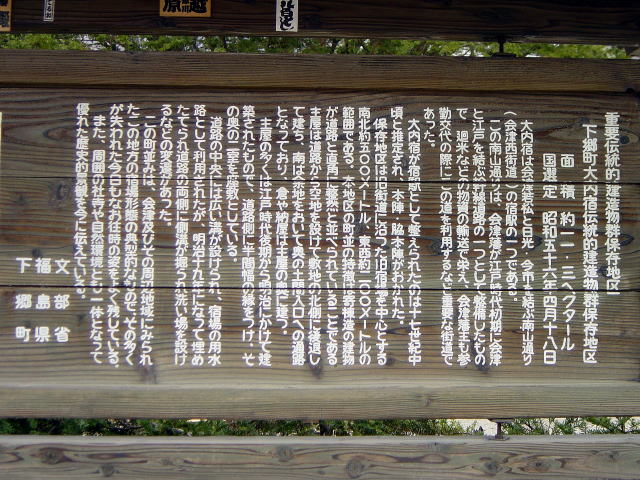 重要伝統的建造物群保存地区
下郷町大内宿伝統的建造物群保存地区
面積 約一一・三ヘクタール
国選定 昭和五十六年四月十八日
大内宿は会津若松と日光・今市を結ぶ南山通り
(会津西街道)の宿駅の一つである。
この南山通りは、会津藩が江戸時代初期に会津
と江戸を結ぶ幹線道路の一つとして整備したもの
で、廻米などの物資の輸送で栄え、会津藩主も参
勤交代の際にこの道を利用するなど重要な街道で
あった。
大内宿が宿駅として整えられたのは十七世紀中
頃と推定され、本陣、脇本陣がおかれた。
保存地区は旧街道に沿った旧宿場を中心とする
南北約五〇〇メートル、東西約二〇〇メートルの
範囲である。本地区の町並の特徴は寄棟造の建物
が道路と直角に整然と並べられていることである
主屋は道路から空地を設けて敷地の北側に後退し
て建ち、南は余地をおいて奥の土間入口への通路
となっており、倉や納屋は主屋の奥に建つ。
主屋の多くは江戸時代後期から明治にかけて建
築されたもので、道路側に半間幅の縁をつけ、そ
の奥の二室を座敷としている。
道路の中央には広い溝が設けられ、宿場の用水
路として利用されたが、明治十九年になって埋め
たてられ道路の両側に側溝が掘られ洗い場を設け
るなどの変遷があった。
この町並みは、会津及びその周辺地域にみられ
たこの地方の宿場形態の典型的なもので、その多く
が失われた今日もなお往時の姿をよく残している。
また、周囲の社寺や自然環境とも一体となって
優れた歴史的景観を今に伝えている。
文部省
福島県
下郷町